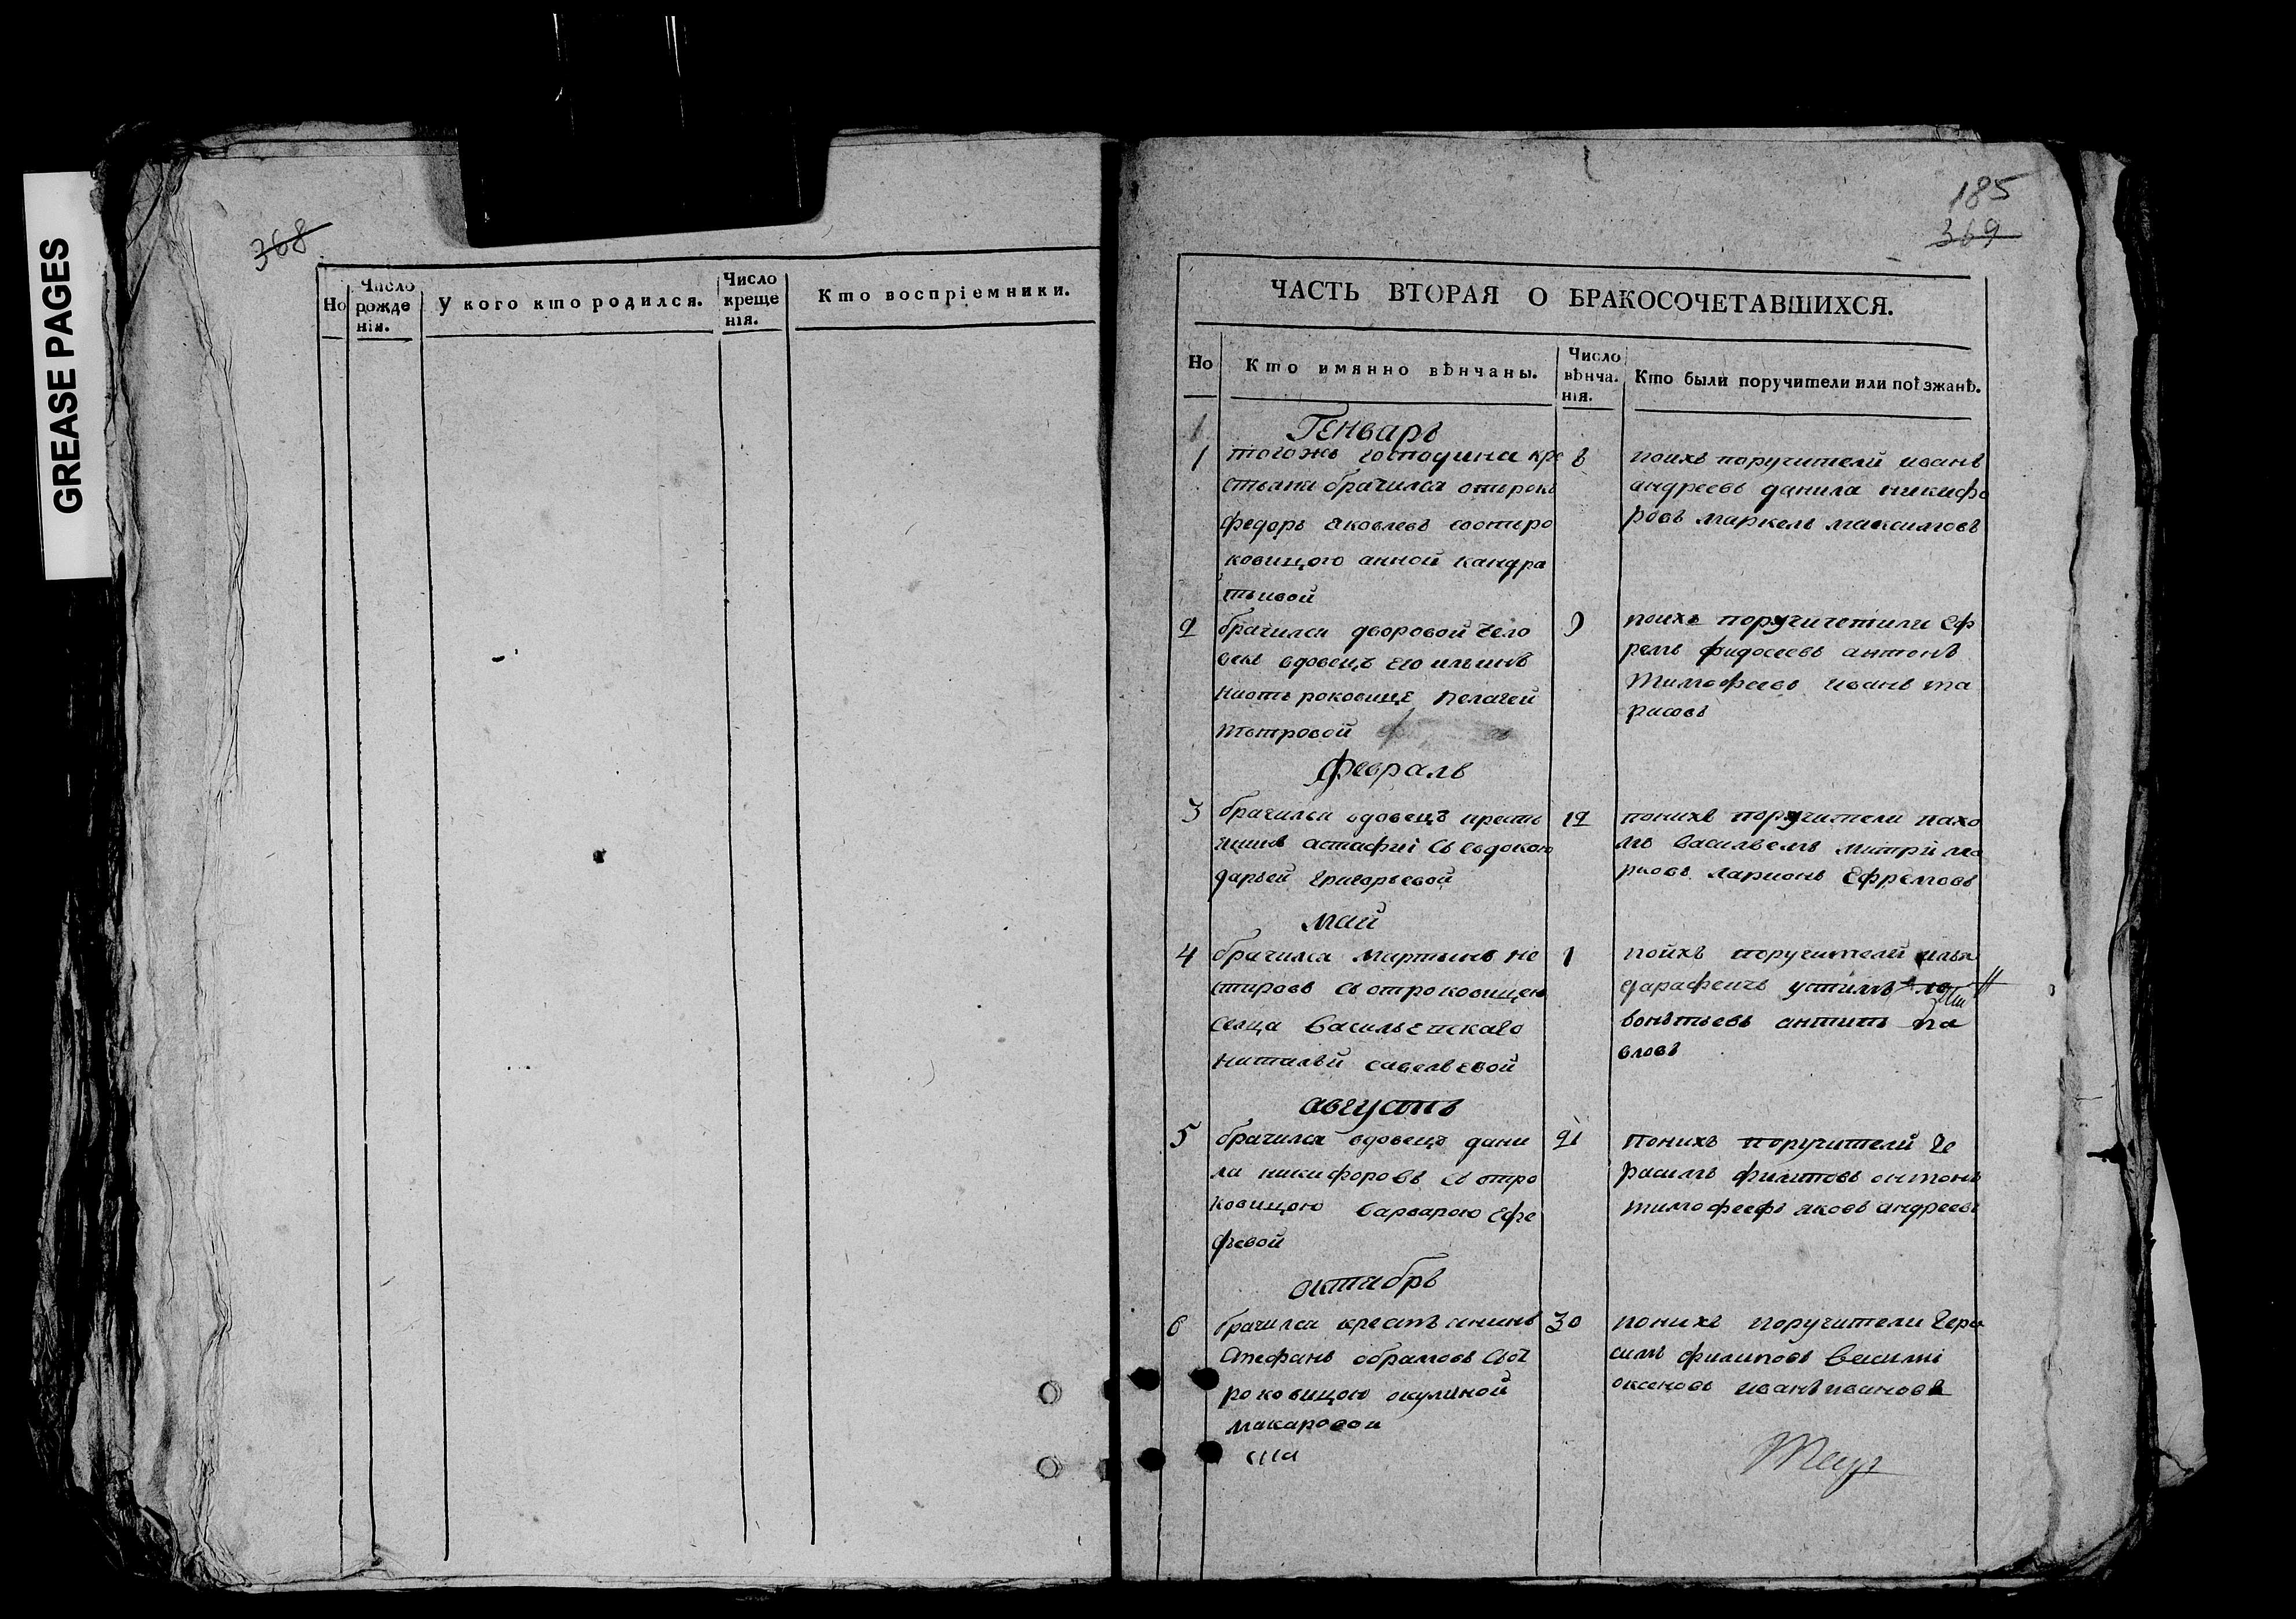 GREASE PAGES
368
Но
Число рожде нія.
У кого кто родился.
Число креще нія.
Кто воспріемники.
185
369
ЧАСТЬ ВТОРАЯ О БРАКОСОЧЕТАВШИХСЯ.
Но
Кто имянно вѣнчаны.
Число вѣнча. нія.
Кто были поручители или поѣзжанѣ.
Генварь
1 тогожъ господина кре 8
стьяни брачился
федоръ яковлевъ сотъро
ковицою анной кандра
тьивой
поихъ поручители иванъ
андреевъ данила никифо
ровъ маркелъ максимовъ
2 брачилси дворовой чело 9
векъ вдовецъ
роковице пелагей
пътровой
поихъ поручичетили еф
ремъ фидосеевъ антонъ
тимофеевъ иванъ та
расовъ
февраль
3 брачилси вдовецъ кресть 12
янинъ астафиі съ вдокою
дарьей григорьевой
понихъ поручители пахо
мъ васильемъ митрий ма
рковъ ларионъ Ефремовъ
май
4 брачился мартынъ не 1
стировъ съ отроковицею
селца васильепскаго
наталъй савельевой
пойхъ поручители илья
устимъ
вонътьевъ антипъ па
вловъ
августъ
5 брачился вдовецъ дани 21
ла никифоровъ съ отро
ковицою варварою ефре
фъевой
понихъ поручители ге
расимъ филитовъ онтонъ
тимофеефъ яковъ андреевъ
октябрь
6 брачился крестьянинъ 30
степанъ обрамовъ съот
роковицою окулиной
макаровой
понихъ поручители гера
симъ филиповъ василиі
оксеновъ иванъ ивановъ